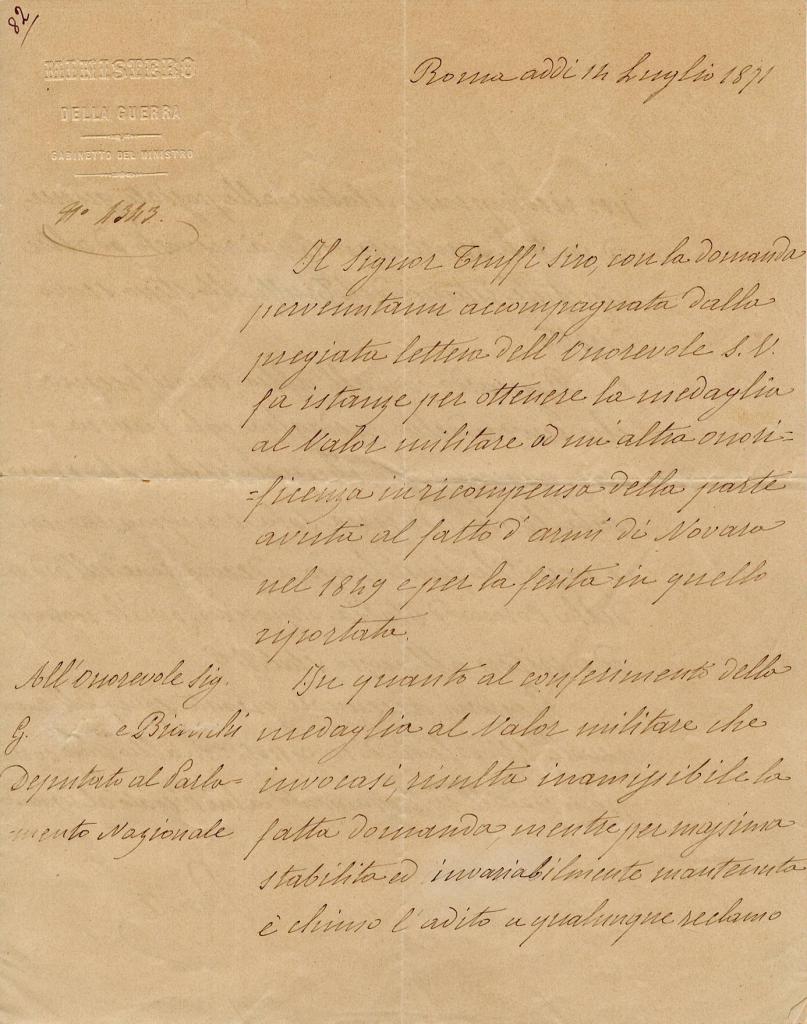 82
MINISTERO
DELLA GUERRA
GABINETTO DEL MINISTRO
N° 4343.
Roma addì 14 Luglio 1871
Il Signor Truffi Siro, con la domanda
pervenutami accompagnata dalla
pregiata lettera dell'Onorevole S. V.
fa istanze per ottenere la medaglia
al Valor militare od un'altra onori=
=ficenza in ricompensa della parte
avuta al fatto d'armi di Novara
nel 1849 e per la ferita in quello
riportata.
In quanto al conferimento della
medaglia al Valor militare che
invocasi, risulta inamissibile la
fatta domanda, mentre per massima
stabilita ed invariabilmente mantenuta
è chiuso l'adito a qualunque reclamo
All'Onorevole Sig.
G. e Bianchi
Deputato al Parla=
=mento Nazionale